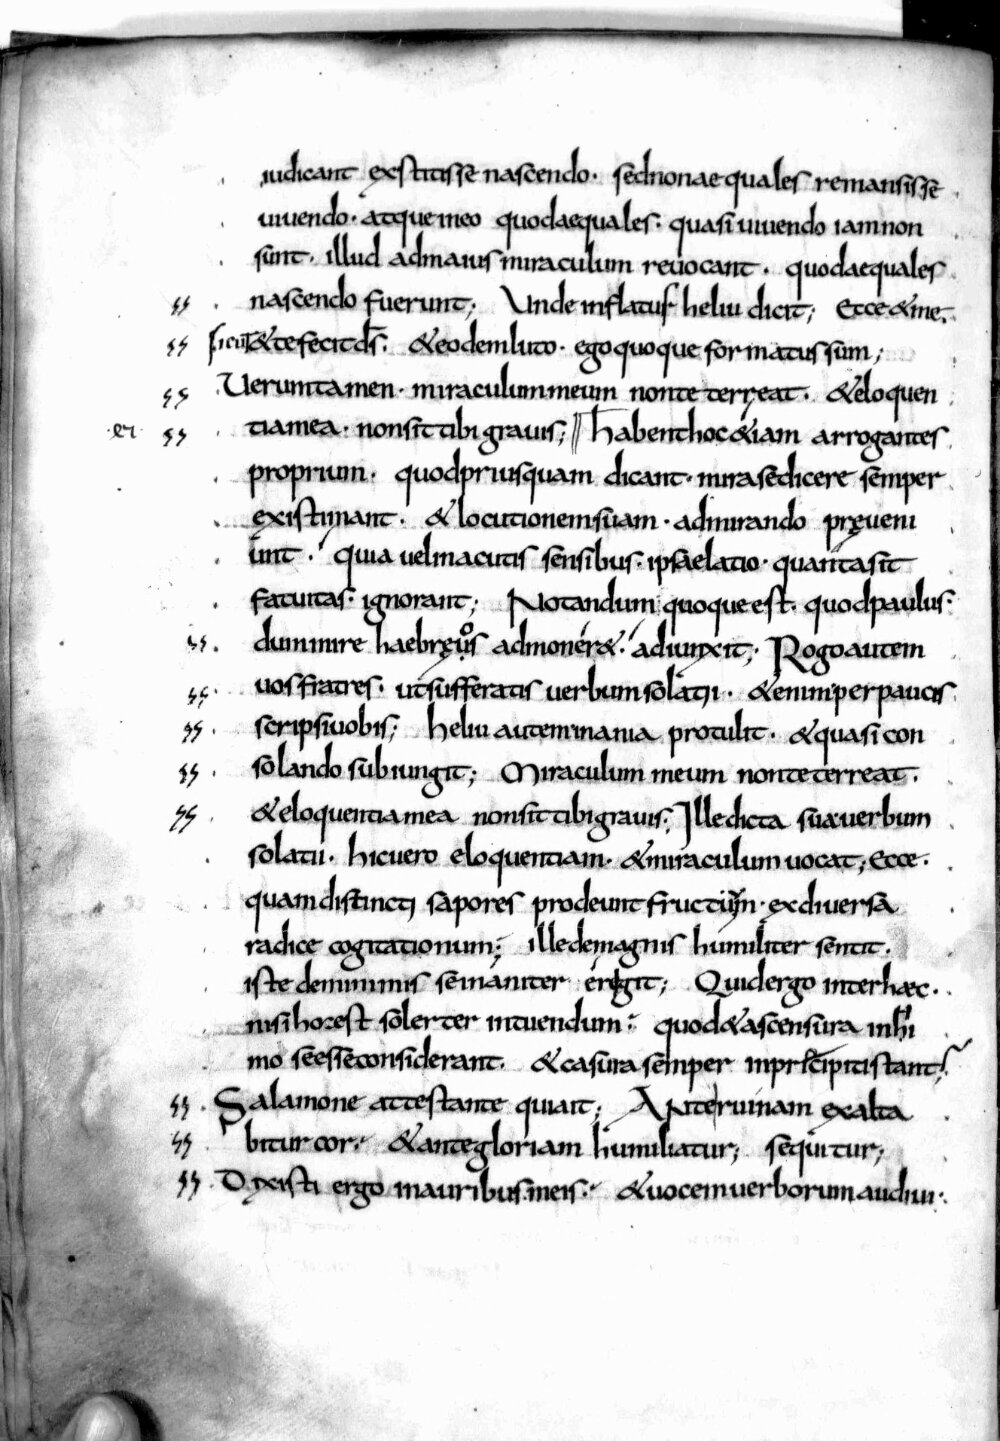 iudicant exstitisse nascendo· sed non aequales remansisse
uiuendo· atque in eo quod aequales· quasi uiuendo iam non
sunt· illud ad maius miraculum reuocant· quod aequales
nascendo fuerunt; Unde inflatus heliu dicit; Ecce & me·
sicut & te fecit d̄s· & eodem luto· ego quoque formatus sum;
Uerumtamen· miraculum meum non te terreat· & eloquen
er tia mea· non sit tibi grauis; Habent hoc & iam arrogantes
proprium· quod priusquam dicant· mira se dicere semper
existimant· & locutionem suam· admirando pręueni
unt· quia uel in acutis sensibus· ipsa elatio· quanta sit
fatuitas· ignorant; Notandum quoque est· quod paulus·
dum mire haebręos admoner&· adiunxit; Rogo autem
uos fratres· ut sufferatis uerbum solatii· & enim perpaucis
scripsi uobis; heliu autem inania protulit· & quasi con
solando subiungit; Miraculum meum non te terreat·
& eloquentia mea non sit tibi grauis; Ille dicta sua uerbum
solatii· hic uero eloquentiam· & miraculum uocat; Ecce·
quam distincti sapores prodeunt fructuum· ex diuersa
radice cogitationum; ille de magnis humiliter sentit·
iste de minimis se inaniter erigit; Quid ergo inter haec·
nisi hoc est solerter intuendum· quod & ascensura in hi
mo se esse considerant· & casura semper in precipiti stant·
Salamone attestante qui ait; Ante ruinam exalta
bitur cor· & ante gloriam humiliatur; sequitur;
Dixisti ergo in auribus meis· & uocem uerborum audiui·